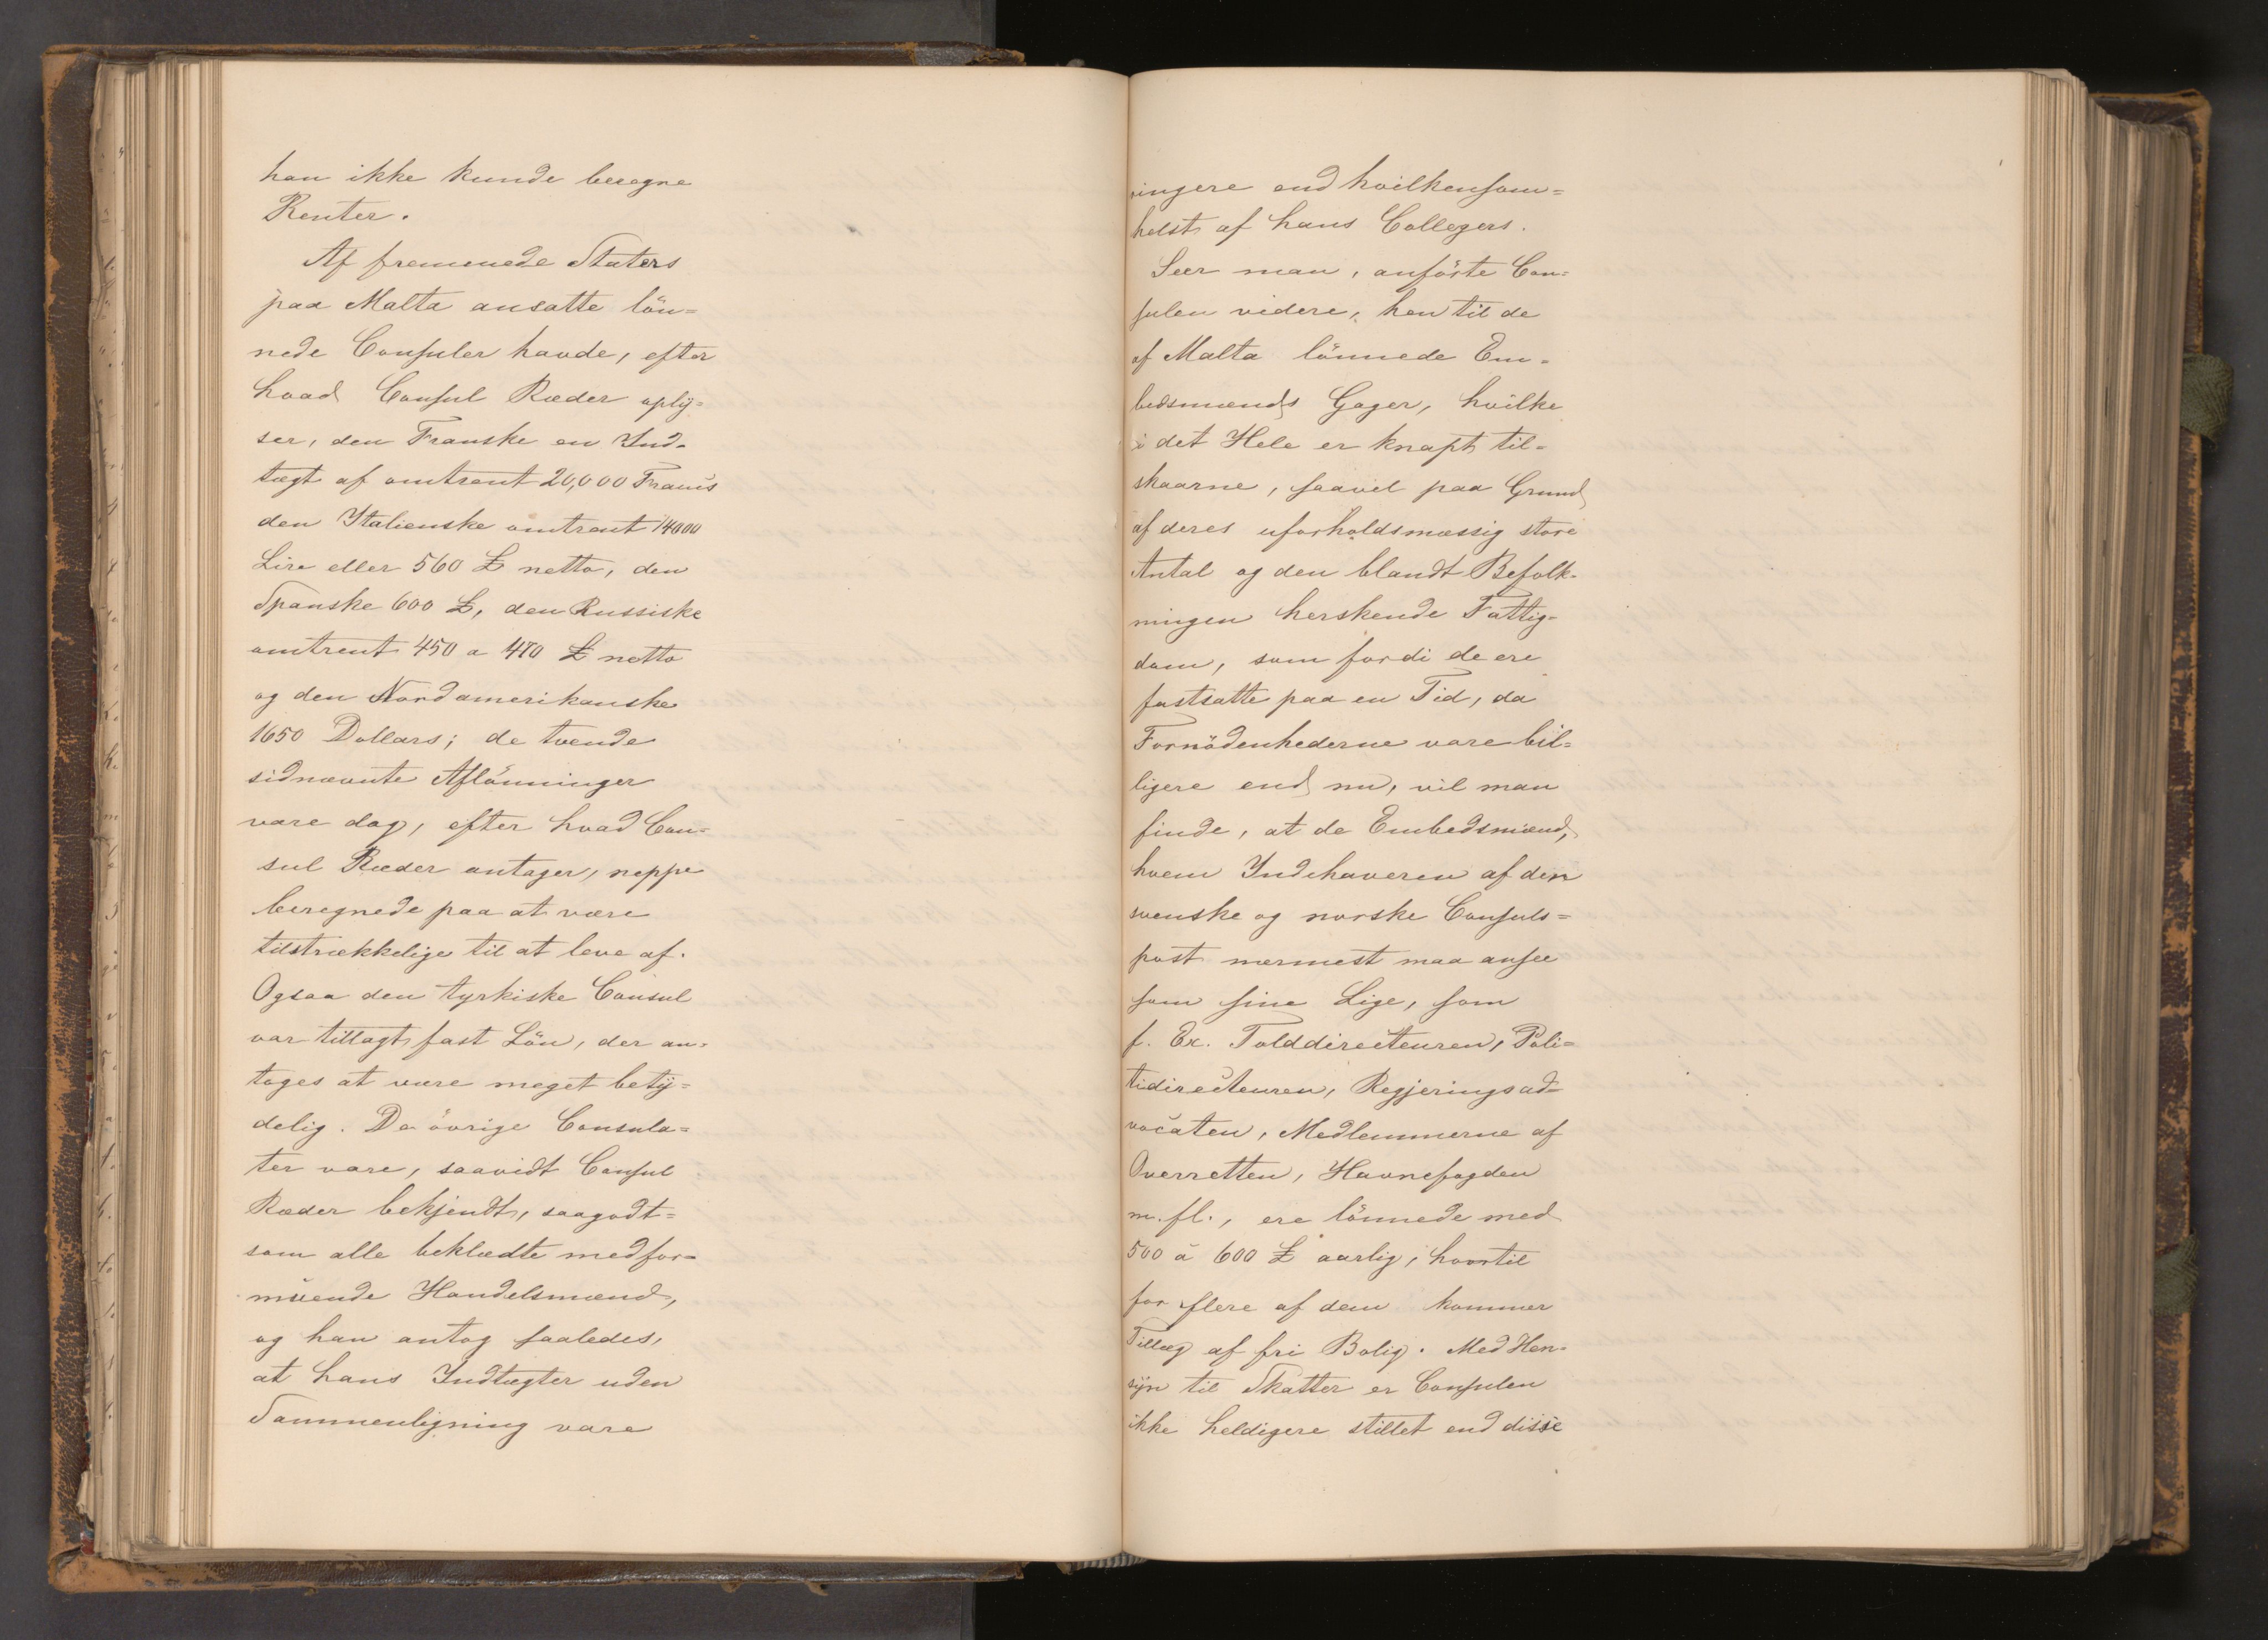 han ikke kunde beregne
Renter.
Af fremmede Staters
paa Malta ansatte lön=
nede Consuler havde, efter
hvad Consul Ræder oplÿ=
ser, den Franske en Ind-
tægt af omtrent 20,000 Francs
den Italienske omtrent 14000
Lire eller 560 £ netto, den
Spanske 600 £, den Russiske
omtrent 450 a 470 £ netto
og den Nordamerikanske
1650 Dollars; de tvende
sidnævnte Aflönninger
vare dog, efter hvad Con=
sul Ræder antager, neppe
beregnede paa at være
tilstrækkelige til at leve af.
Ogsaa den tyrkiske Consul
var tillagt fast Lön, der an=
toges at være meget betÿ=
delig. De övrige Consula=
ter vare, saavidt Consul
Ræder bekjendt, saagodt=
som alle beklædte med for=
muende Handelsmænd,
og han antog saaledes,
at hans Indtægter uden
Sammenligning vare
ringere end hvilkensom=
helst af hans Collegers.
Seer man, anförte Con=
sulen videre, hen til de
af Malta lönnede Em=
bedsmænds Gager, hvilke
i det Hele er knapt til=
skaarne, saavel paa Grund
af deres uforholdsmæssig store
Antal og den blandt Befolk-
ningen herskende Fattig-
dom, som fordi de ere
fastsatte paa en Tid, da
Fornödenhederne vare bil=
ligere end nu, vil man
finde, at de Embedsmænd,
hvem Indehaveren af den
svenske og norske Consuls=
post nærmest maa ansee
som sine Lige, som
f. Ex. Tolddirecteuren, Poli=
tidirecteuren, Regjeringsad=
vocaten, Medlemmerne af
Overretten, Havnefogden
m. fl., ere lönnede med
500 à 600 £ aarlig, hvortil
for flere af dem kommer
Tillæg af fri Bolig. Med Hen=
sÿn til Skatter er Consulen
ikke heldigere stillet end disse